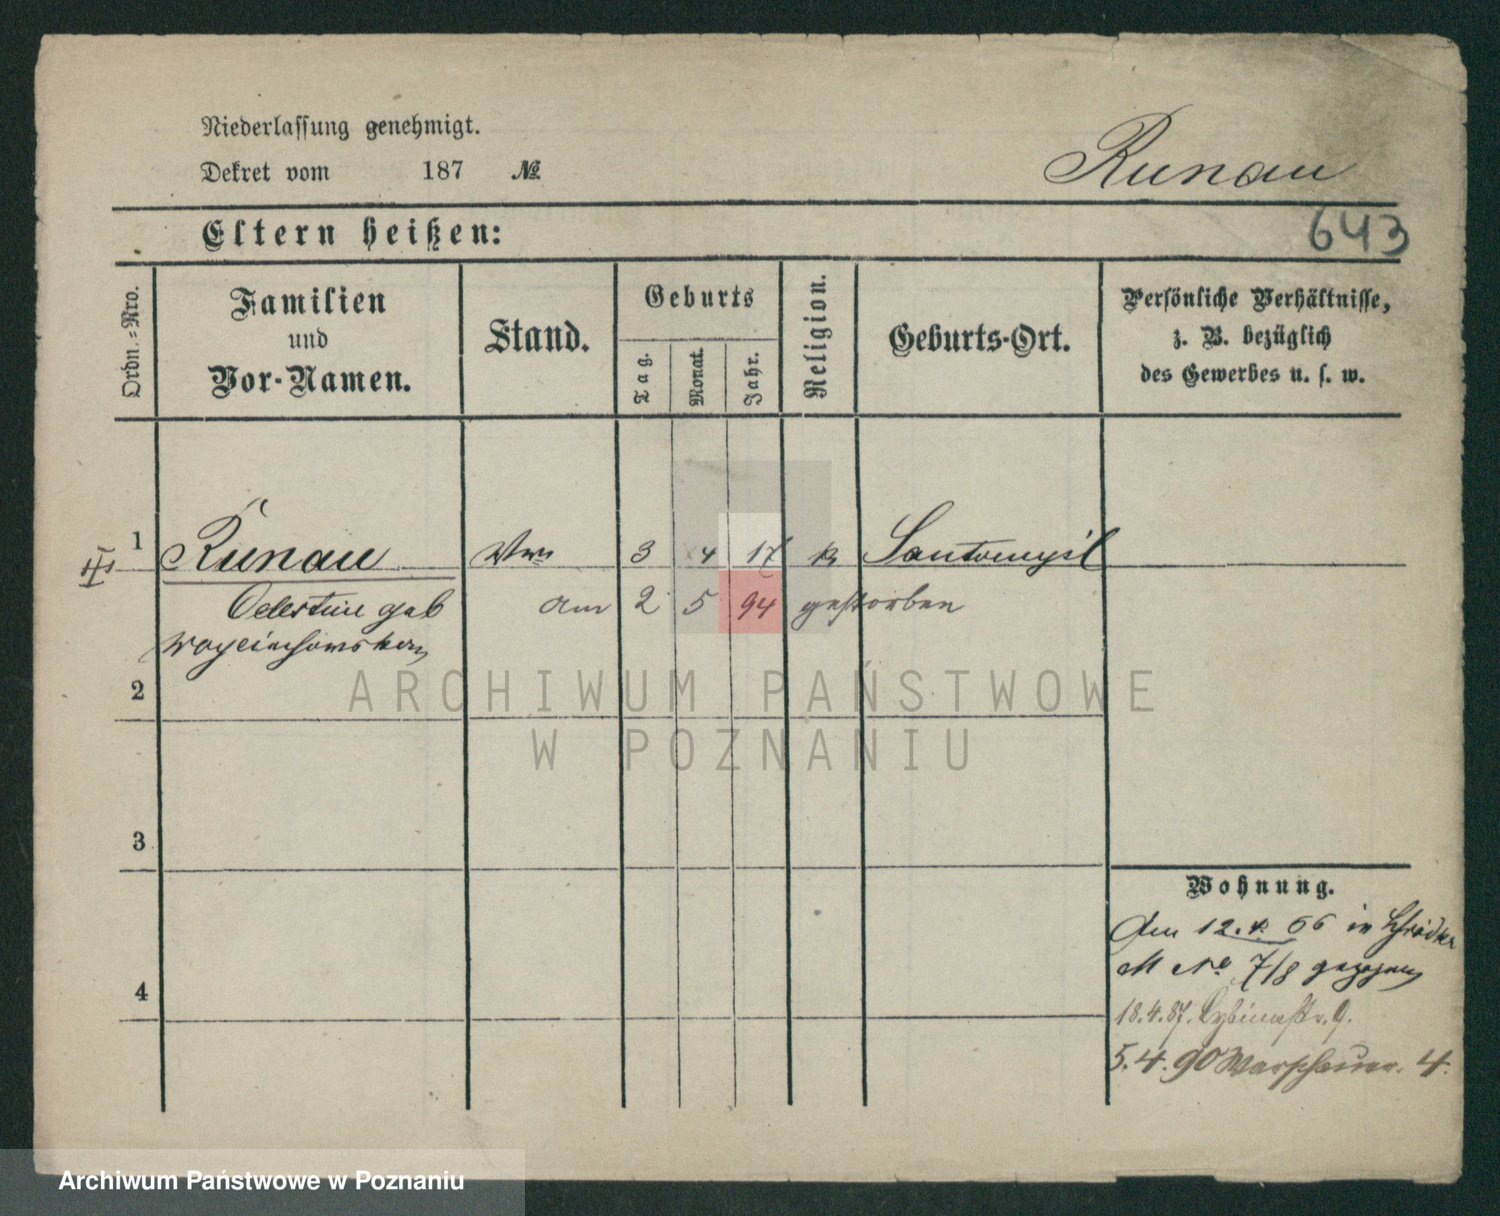 Niederlassung genehmigt.
Dekret vom 187 №
Runau
643
Eltern heißen:
Ordn.-Nro.
Familien
und
Vor-Namen.
Stand.
Geburts
Tag.
Monat.
Jahr.
Religion.
Geburts-Ort.
Persönliche Verhältnisse,
z. B. bezüglich
des Gewerbes u. s. w.
1 Runau 3 4 17 k Santomysl
Celestine geb am 2 5 94 gestorben
Woyciechowska
2
3
4
Wohnung.
Am 12. 66 in Schrodka
M No 7/8 gezogen
18.4.87. Cybinastr. 9.
5.4.90 Warschauer. 4.
ARCHIWUM PAŃSTWOWE
W POZNANIU
Archiwum Państwowe w Poznaniu